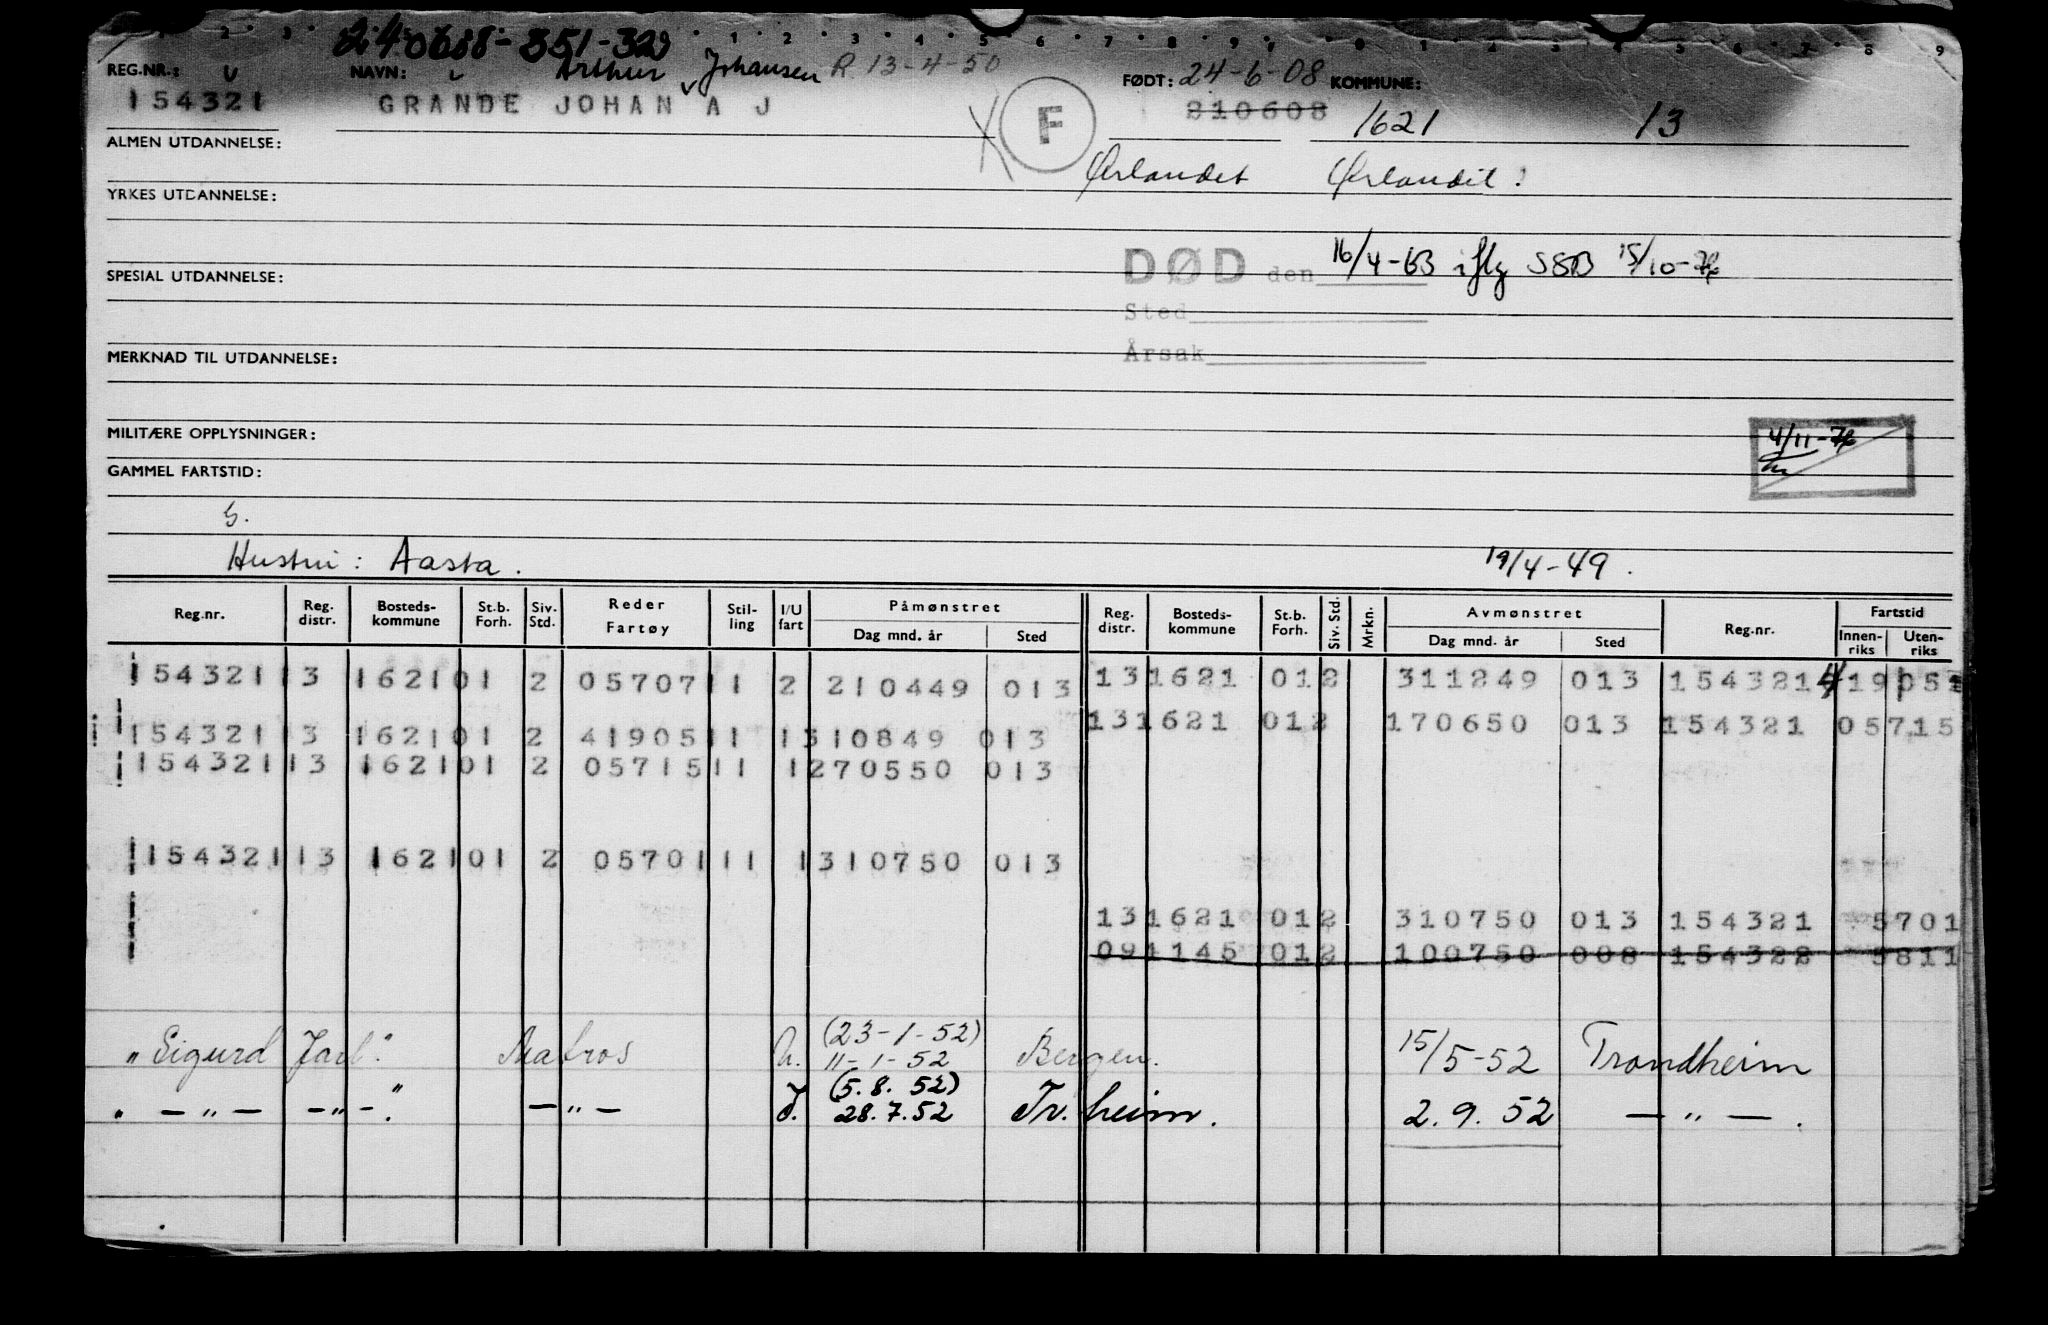 240608-351-329
REG.NR.: NAVN: Arthur Johansen R 13-4-50 FØDT: 24-6-08 KOMMUNE:
154321 GRANDE JOHAN A J F 210608 1621 13
ALMEN UTDANNELSE: Ørlandet Ørlandet
YRKES UTDANNELSE:
DØD den 16/4-63 iflg SSB 15/10-
SPESIAL UTDANNELSE:
Sted
Årsak
MERKNAD TIL UTDANNELSE:
MILITÆRE OPPLYSNINGER: 4/11-
GAMMEL FARTSTID:
G.
Hustru: Aasta. 19/4-49.
Reg.nr. Reg. distr. Bosteds-kommune St.b. Forh. Siv. Std. Reder Fartøy Stil-ling I/U fart Påmønstret Dag mnd. år Sted Reg. distr. Bosteds-kommune St.b. Forh. Siv. Std. Mrkn. Avmønstret Dag mnd. år Sted Reg.nr. Fartstid Innen-riks Uten-riks
154321 13 1621 01 2 05707 11 2 210449 013 13 1621 01 2 311249 013 154321 41905
13 1621 01 2 170650 013 154321 05715
154321 13 1621 01 2 41905 11 1 310849 013
154321 13 1621 01 2 05715 11 1 270550 013
154321 13 1621 01 2 05701 11 1 310750 013
13 1621 01 2 310750 013 154321 5701
09 1145 01 2 100750 008 154322 5811
(23-1-52)
"Sigurd Jarl". Matros U. 11-1-52 Bergen. 15/5-52 Trondheim
(5.8.52)
" — " — — " — ". — " — I. 28.7.52 Tr.heim. 2.9.52 — " — .